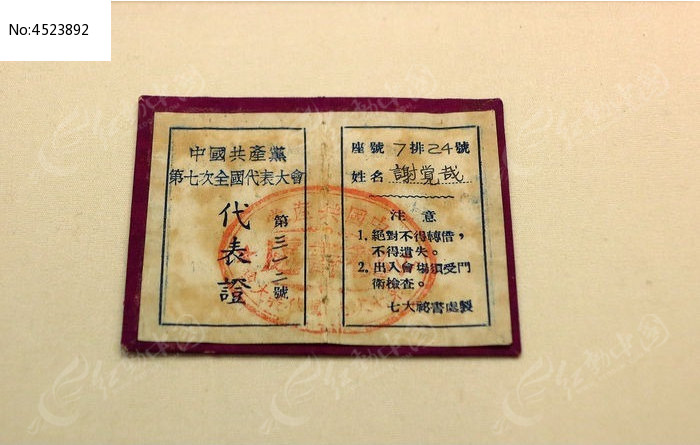 No:4523892
中國共產黨
第七次全國代表大會
代表證
第三一二號
座號 7排24號
姓名 謝覚哉
注意
1. 絕對不得轉借，
不得遺失。
2. 出入會場須受門
衛檢查。
七大祕書處製